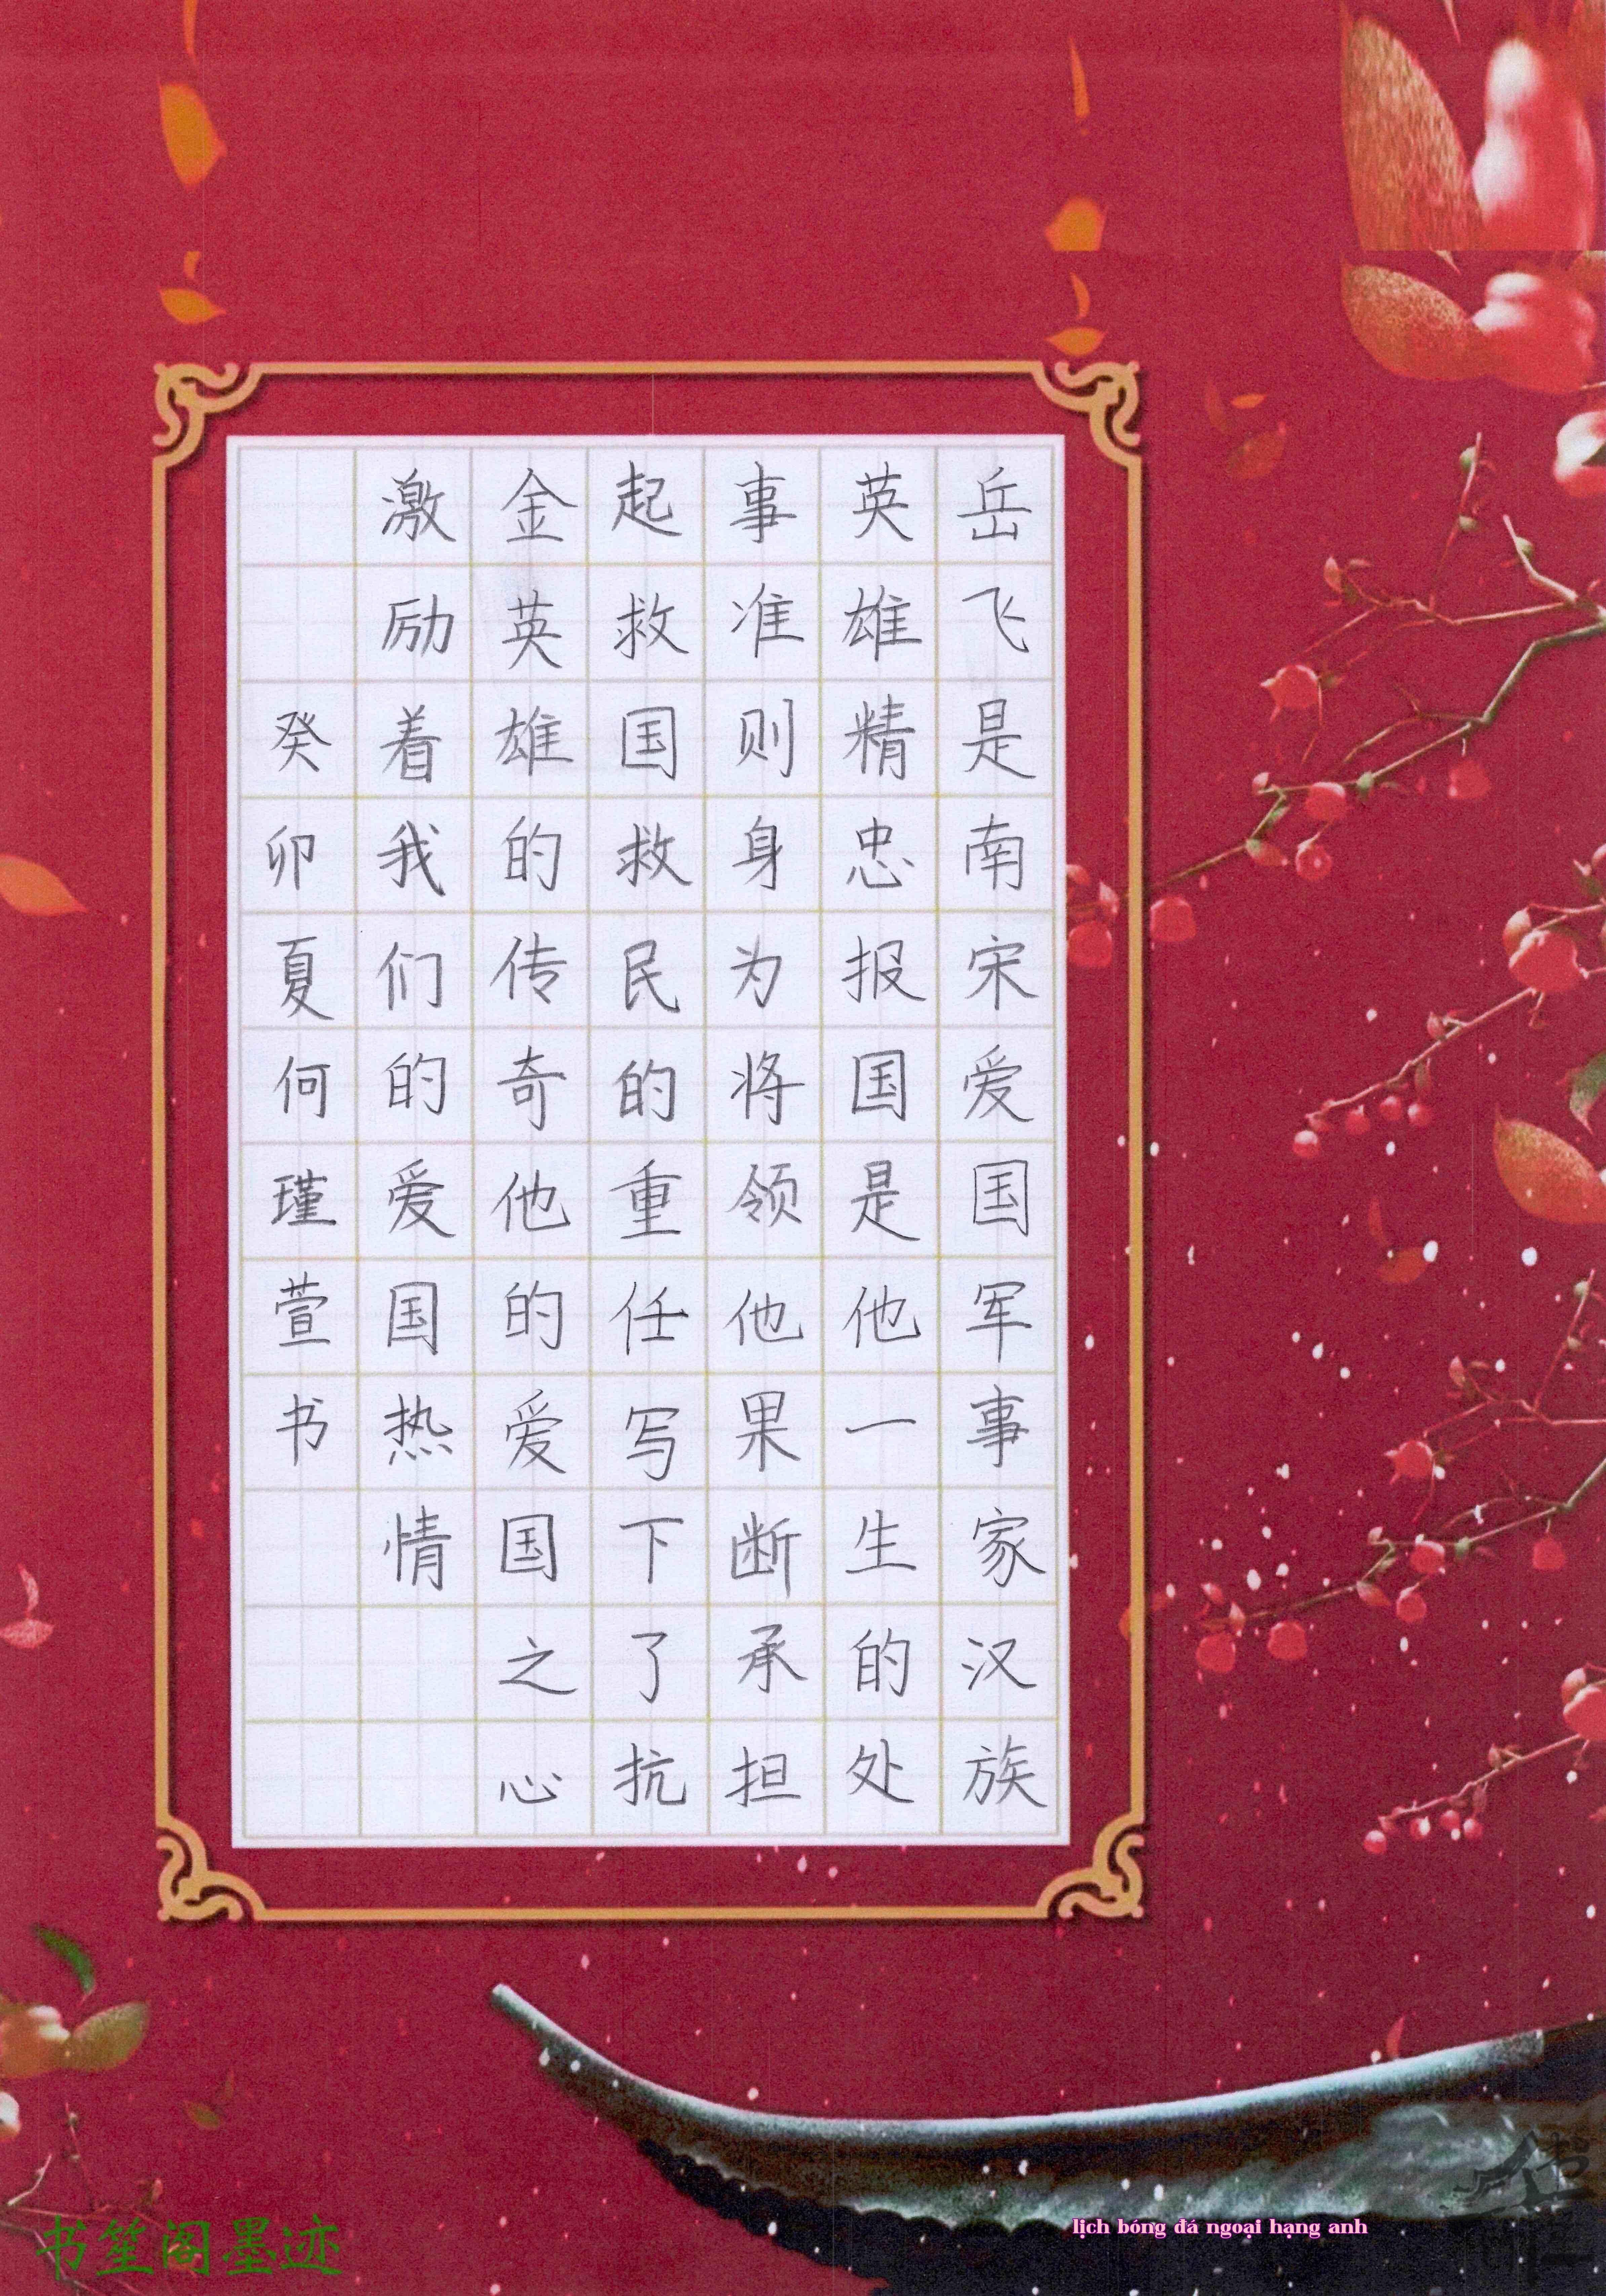 岳飞是南宋爱国军事家汉族
英雄精忠报国是他一生的处
事准则身为将领他果断承担
起救国救民的重任写下了抗
金英雄的传奇他的爱国之心
激励着我们的爱国热情
癸卯夏何瑾萱书
书笙阁墨迹
lịch bóng đá ngoại hạng anh